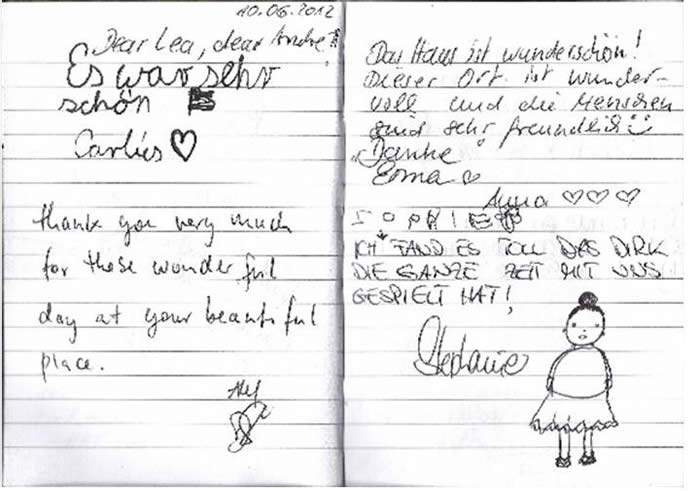 10.06.2012
Dear Lea, dear Andre!
Es war sehr
schön
Carlies ♡
thank you very much
for those wonderful
day at your beautiful
place.
Das Haus ist wunderschön!
Dieser Ort ist wunder-
voll und die Menschen
sind sehr freundlich
Danke
Erma ♡
Anna ♡♡♡
ICH FAND ES TOLL DAS DIRK
DIE GANZE ZEIT MIT UNS
GESPIELT HAT!
Stephanie